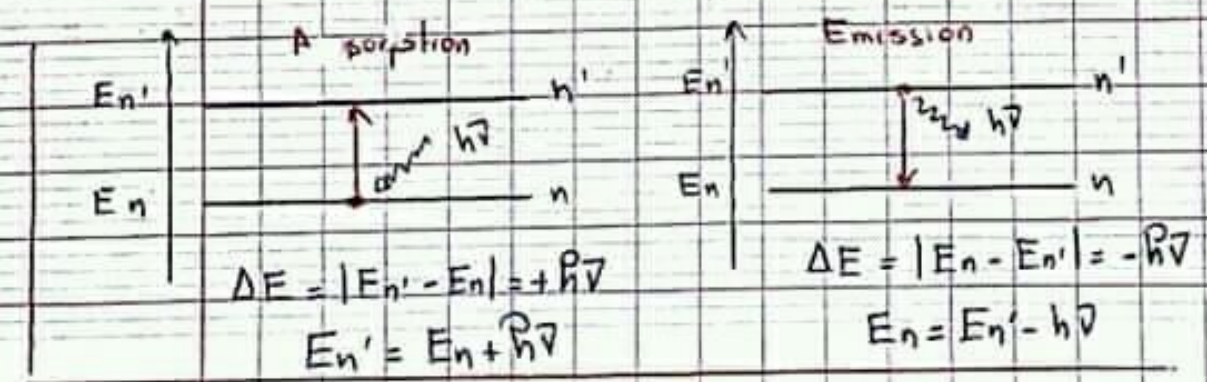 A sorpstion
En'
n'
hν
En
n
ΔE = |En' - En| = +hν
En' = En + hν
Emission
En'
n'
hν
En
n
ΔE = |En - En'| = -hν
En = En' - hν